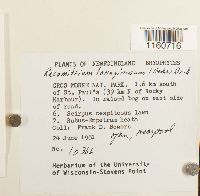 1160716
PLANTS OF NEWFOUNDLAND BRYOPHYTES
Racomitrium lanuginosum (Hedw.) Brid.
GROS MORNE NAT. PARK, 1.6 km south
of St. Paul's (39 km N of Rocky
Harbour). In raised bog on east side
of road.
6. Scirpus cespitosus lawn
7. Rubus-Empetrum heath
Coll. Frank D. Bowers
24 June 1982
No.
Herbarium of the University
of Wisconsin-Stevens Point